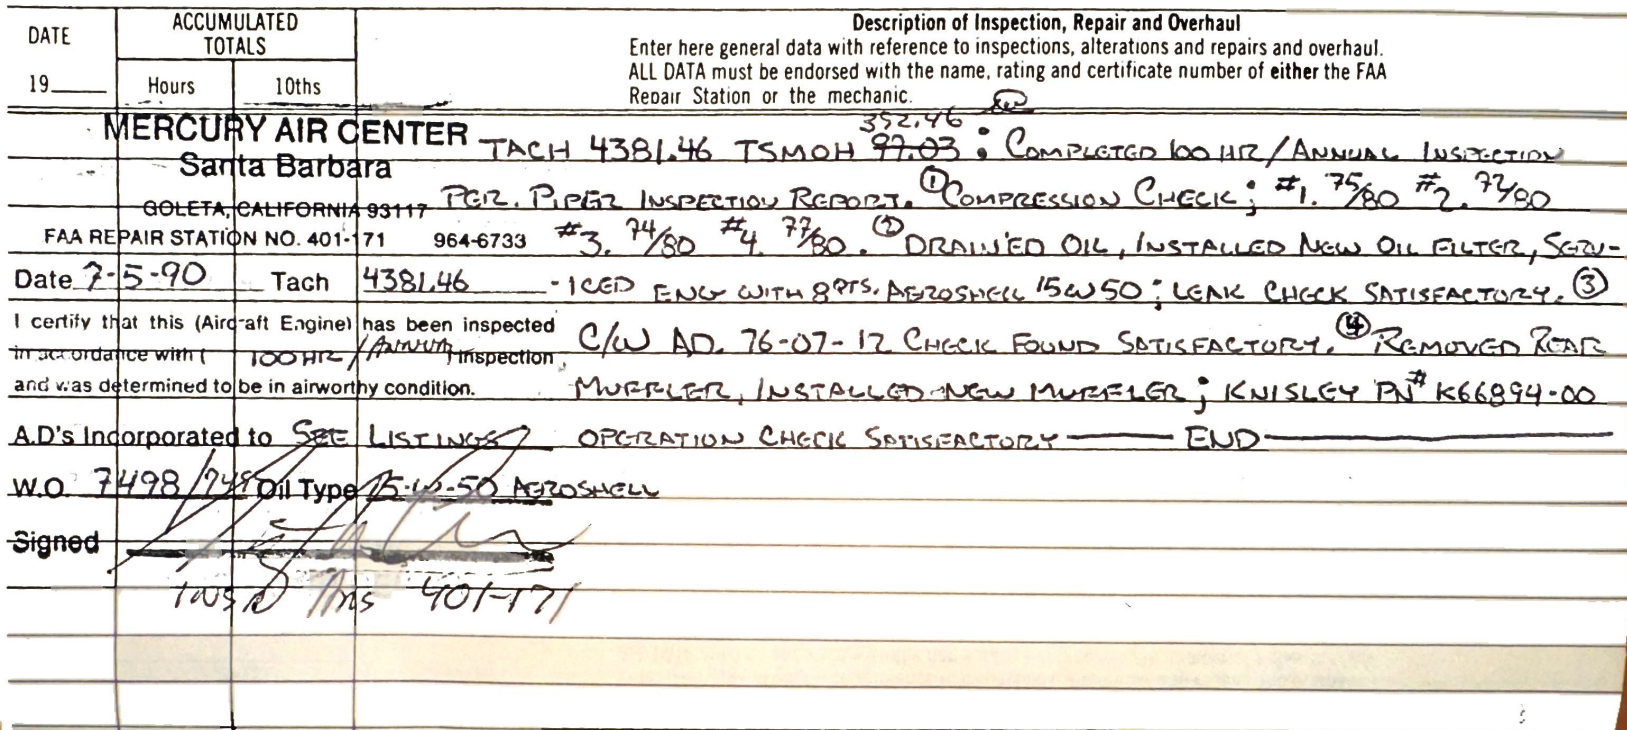 DATE
19
ACCUMULATED
TOTALS
Hours 10ths
Description of Inspection, Repair and Overhaul
Enter here general data with reference to inspections, alterations and repairs and overhaul.
ALL DATA must be endorsed with the name, rating and certificate number of either the FAA
Repair Station or the mechanic.
MERCURY AIR CENTER
Santa Barbara
GOLETA, CALIFORNIA 93117
FAA REPAIR STATION NO. 401-171 964-6733
Date 7-5-90 Tach 4381.46
I certify that this (Aircraft Engine) has been inspected
in accordance with ( 100 HR / ANNUAL ) inspection
and was determined to be in airworthy condition.
A.D's Incorporated to SEE LISTINGS
W.O. 7498 Oil Type 15-W-50 AEROSHELL
Signed
401-171
352.46
TACH 4381.46 TSMOH 97.03 ; COMPLETED 100 HR/ANNUAL INSPECTION
PER. PIPER INSPECTION REPORT. ① COMPRESSION CHECK ; #1. 75/80 #2. 77/80
#3. 74/80 #4. 77/80. ② DRAIN'ED OIL, INSTALLED NEW OIL FILTER, SERV-
-ICED ENG WITH 8 QTS. AEROSHELL 15W50 ; LEAK CHECK SATISFACTORY. ③
C/W AD. 76-07-12 CHECK FOUND SATISFACTORY. ④ REMOVED REAR
MUFFLER, INSTALLED NEW MUFFLER ; KNISLEY PN# K66894-00
OPERATION CHECK SATISFACTORY — END —